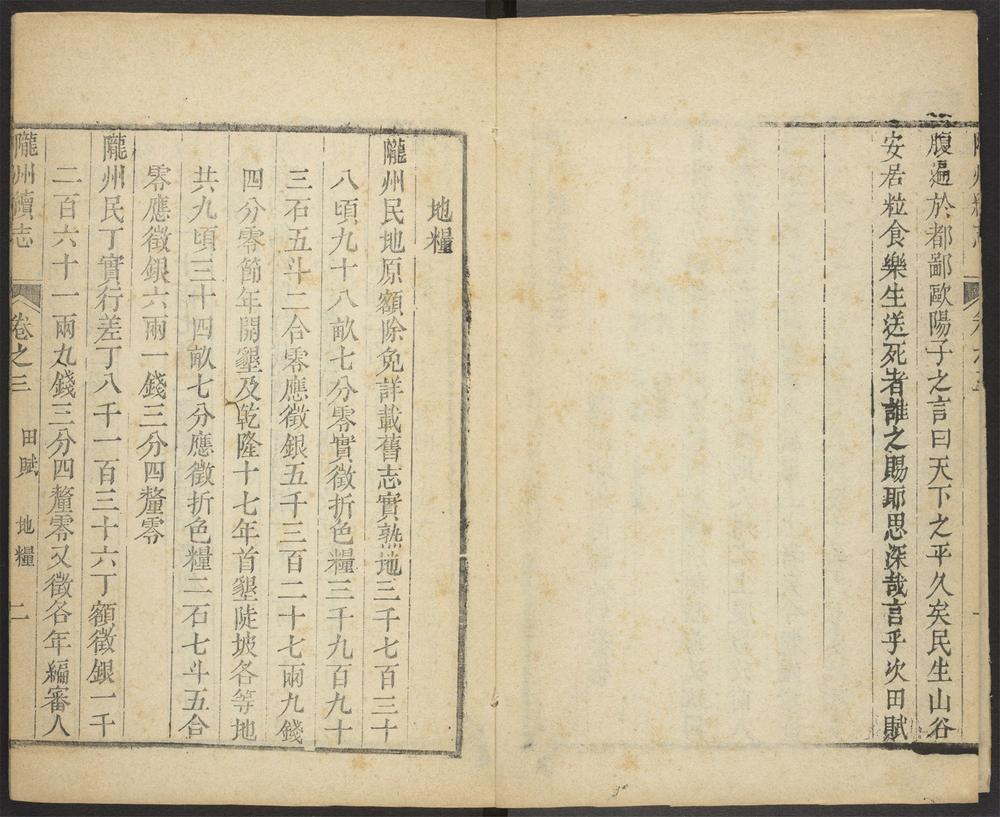 腹遍於都鄙歐陽子之言曰天下之平久矣民生山谷
安居粒食樂生送死者誰之賜耶思深哉言乎次田賦
地糧
隴州民地原額除免詳載舊志實熟地三千七百三十
八頃九十八畝七分零實徵折色糧三千九百九十
三石五斗二合零應徵銀五千三百二十七兩九錢
四分零節年開墾及乾隆十七年首墾陡坡各等地
共九頃三十四畝七分應徵折色糧二石七斗五合
零應徵銀六兩一錢三分四釐零
隴州民丁實行差丁八千一百三十六丁額徵銀一千
二百六十一兩九錢三分四釐零又徵各年編審人
隴州續志 卷之三 田賦 地糧 二